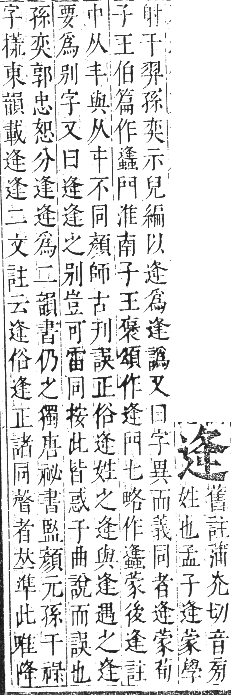 逄
舊註蒲光切音旁
姓也孟子逄蒙學
射于羿孫奕示兒編以逄為逢譌又曰字異而義同者逄蒙荀
子王伯篇作蠭門淮南子王褒頌作逢門七略作蠭蒙後逢註
中从丰與从㐄不同顏師古刋誤正俗逄姓之逄與逢遇之逢
要為別字又曰逄逢之別豈可雷同按此皆惑于曲說而誤也
孫奕郭忠恕分逄逢為二韻書仍之獨唐祕書監顏元孫干祿
字㨾東韻載逄逢二文註云逄俗逢正諸同聲者𠀤準此唯降